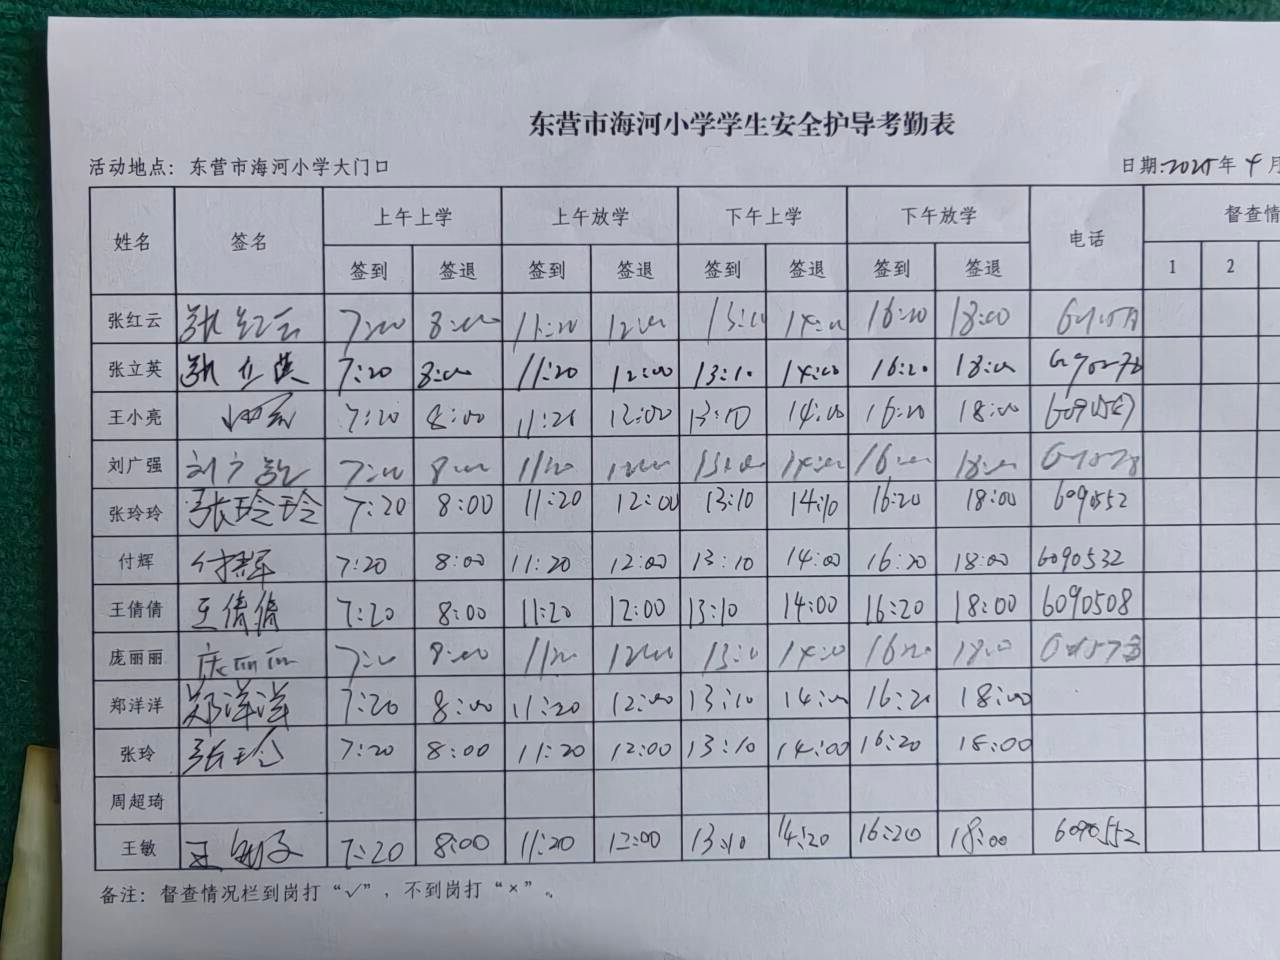 东营市海河小学学生安全护导考勤表
活动地点：东营市海河小学大门口 日期:2025年4月
姓名 签名 上午上学 上午放学 下午上学 下午放学 电话 督查情
签到 签退 签到 签退 签到 签退 签到 签退 1 2
张红云 张红云 7:20 8:00 11:20 12:00 13:10 14:00 16:20 18:00
张立英 张立英 7:20 8:00 11:20 12:00 13:10 14:00 16:20 18:00
王小亮 7:20 8:00 11:20 12:00 13:10 14:00 16:20 18:00
刘广强 刘广强 7:20 8:00 11:20 12:00 13:10 14:00 16:20 18:00
张玲玲 张玲玲 7:20 8:00 11:20 12:00 13:10 14:10 16:20 18:00 6090552
付辉 付辉 7:20 8:00 11:20 12:00 13:10 14:00 16:20 18:00 6090532
王倩倩 王倩倩 7:20 8:00 11:20 12:00 13:10 14:00 16:20 18:00 6090508
庞丽丽 庞丽丽 7:20 8:00 11:20 12:00 13:10 14:00 16:20 18:00
郑洋洋 郑洋洋 7:20 8:00 11:20 12:00 13:10 14:00 16:20 18:00
张玲 张玲 7:20 8:00 11:20 12:00 13:10 14:00 16:20 18:00
周超琦
王敏 王敏 7:20 8:00 11:20 12:00 13:10 14:20 16:20 18:00 6090552
备注：督查情况栏到岗打“√”，不到岗打“×”。